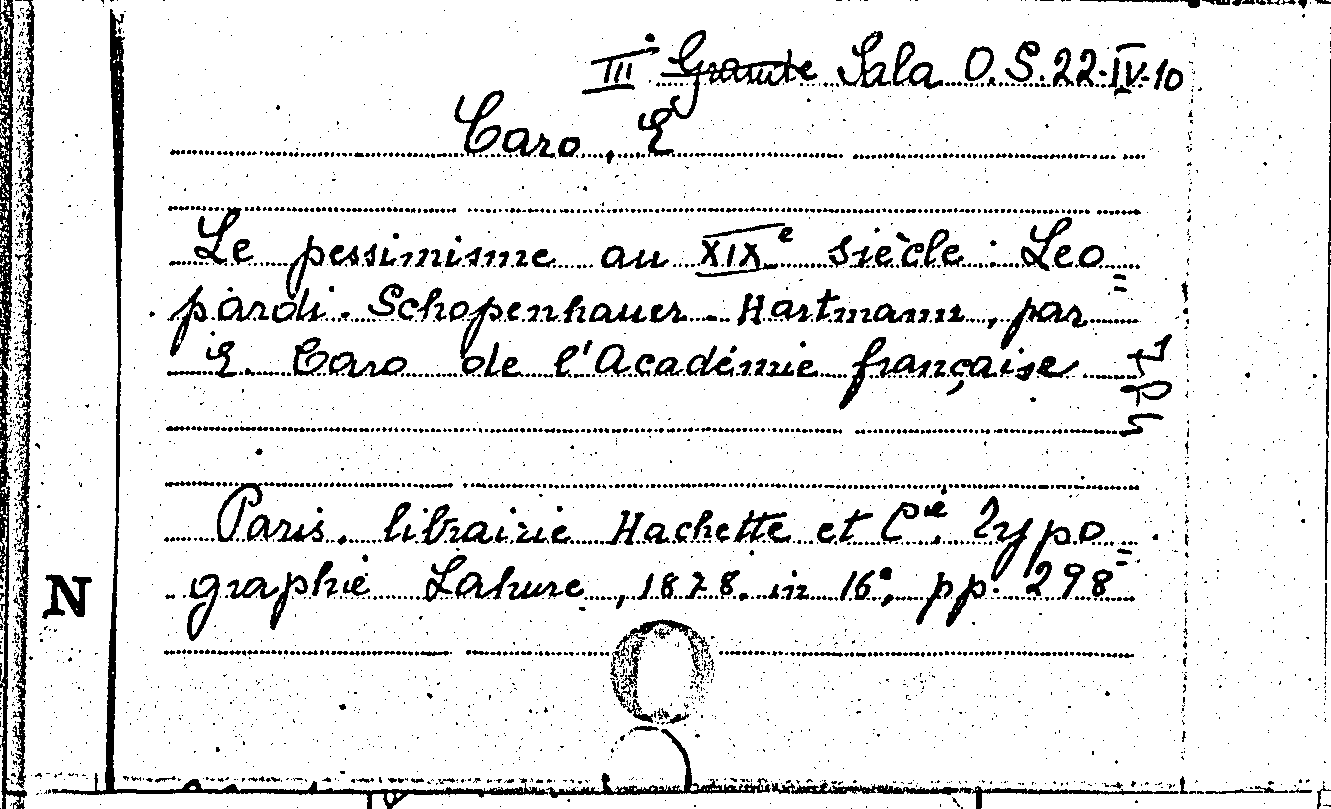 III Sala O.S. 22-IV-10
Caro, E
Le pessimisme au XIXe siècle: Leo=
pardi. Schopenhauer - Hartmann, par
E. Caro de l'Académie française
Paris. librairie Hachette et Cie. Typo=
graphie Lahure, 1878. in 16°, pp. 298
N